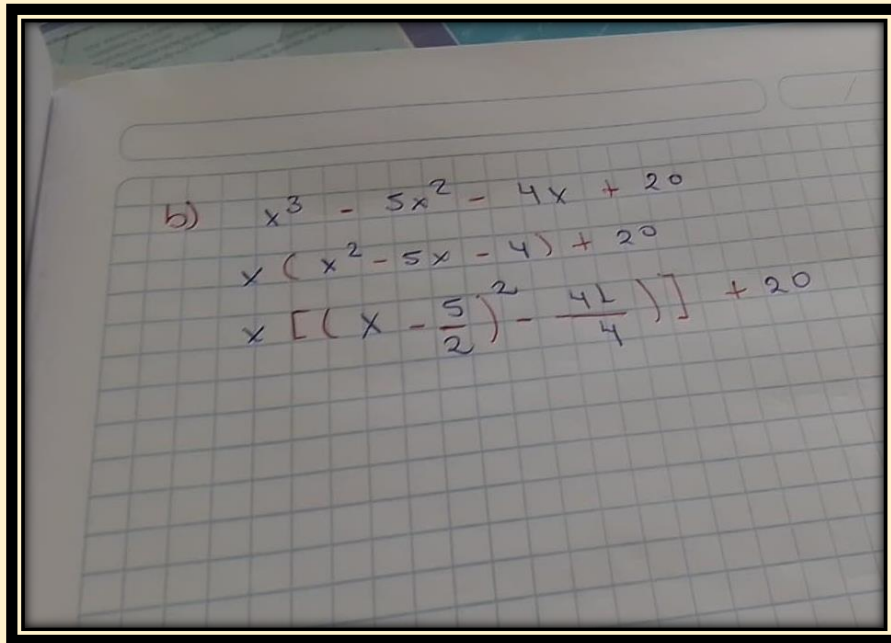 b) x³ - 5x² - 4x + 20
x (x² - 5x - 4) + 20
x [(x - 5/2)² - 41/4)] + 20